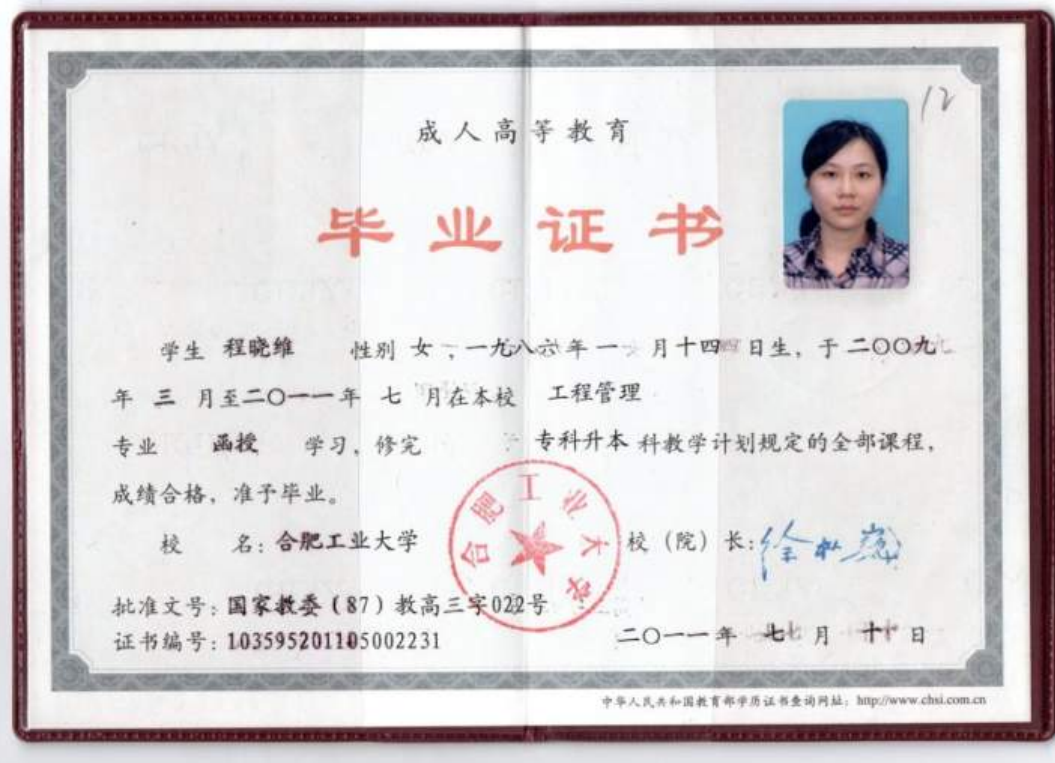 12
成人高等教育
毕业证书
学生 程晓维 性别 女，一九八六年 一 月十四日生，于二〇〇九
年 三 月至二〇一一年 七 月在本校 工程管理
专业 函授 学习，修完 专科升本 科教学计划规定的全部课程，
成绩合格，准予毕业。
校 名：合肥工业大学 校（院）长：
合肥工业大学
批准文号：国家教委（87）教高三字022号
证书编号：103595201105002231 二〇一一年 七 月 十 日
中华人民共和国教育部学历证书查询网址：http://www.chsi.com.cn